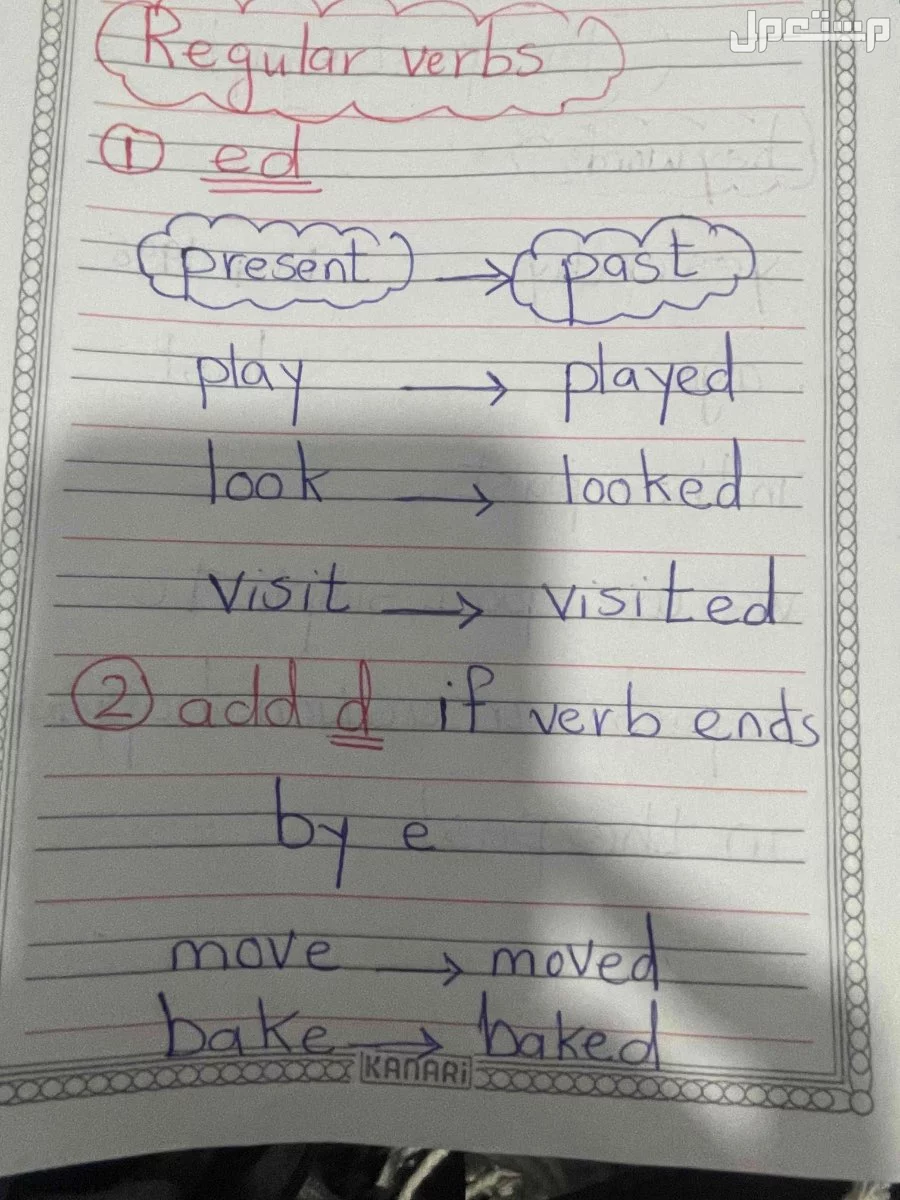 مستعمل
Regular verbs
① ed
present → past
play → played
look → looked
visit → visited
② add d if verb ends
by e
move → moved
bake → baked
KANARi